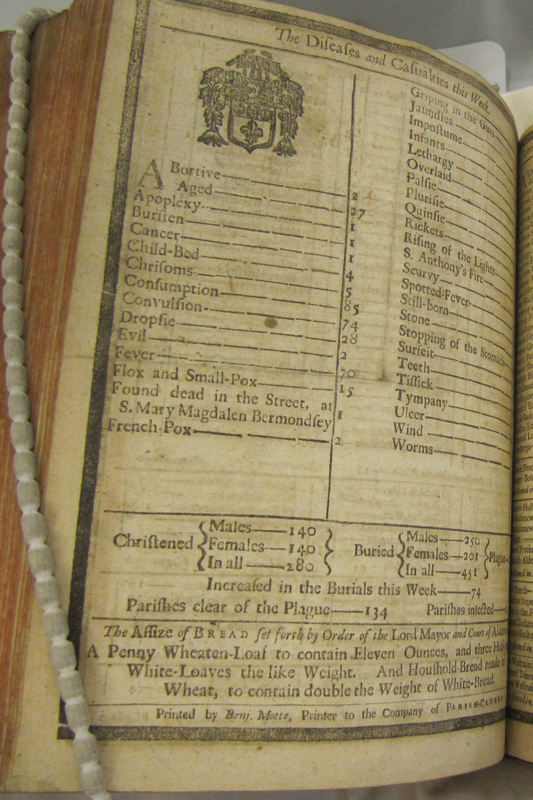 The Diſeaſes and Caſualties this Week.
ABortive——2
Aged——27
Apoplexy——1
Burſten——1
Cancer——1
Child-Bed——4
Chriſoms——5
Conſumption——85
Convulſion——74
Dropſie——28
Evil——2
Fever——70
Flox and Small-Pox——15
Found dead in the Street, at
S. Mary Magdalen Bermondſey——1
French-Pox——2
Griping in the Guts
Jaundies
Impoſtume
Infants
Lethargy
Overlaid
Palſie
Pluriſie
Quinſie
Rickets
Riſing of the Lights
S. Anthony's Fire
Scurvy
Spotted-Fever
Still-born
Stone
Stopping of the Stomach
Surfeit
Teeth
Tiſſick
Tympany
Ulcer
Wind
Worms
Chriſtened { Males——140
Females——140
In all——280 }
Buried { Males——250
Females——201
In all——451 } Plague
Increaſed in the Burials this Week——74
Pariſhes clear of the Plague——134 Pariſhes infected
The Aſſize of BREAD ſet forth by Order of the Lord Mayor and Court of
A Penny Wheaten-Loaf to contain Eleven Ounces, and three
White-Loaves the like Weight. And Houſhold-Bread made of
Wheat, to contain double the Weight of White-Bread.
Printed by Benj. Motte, Printer to the Company of PARISH-CLERKS